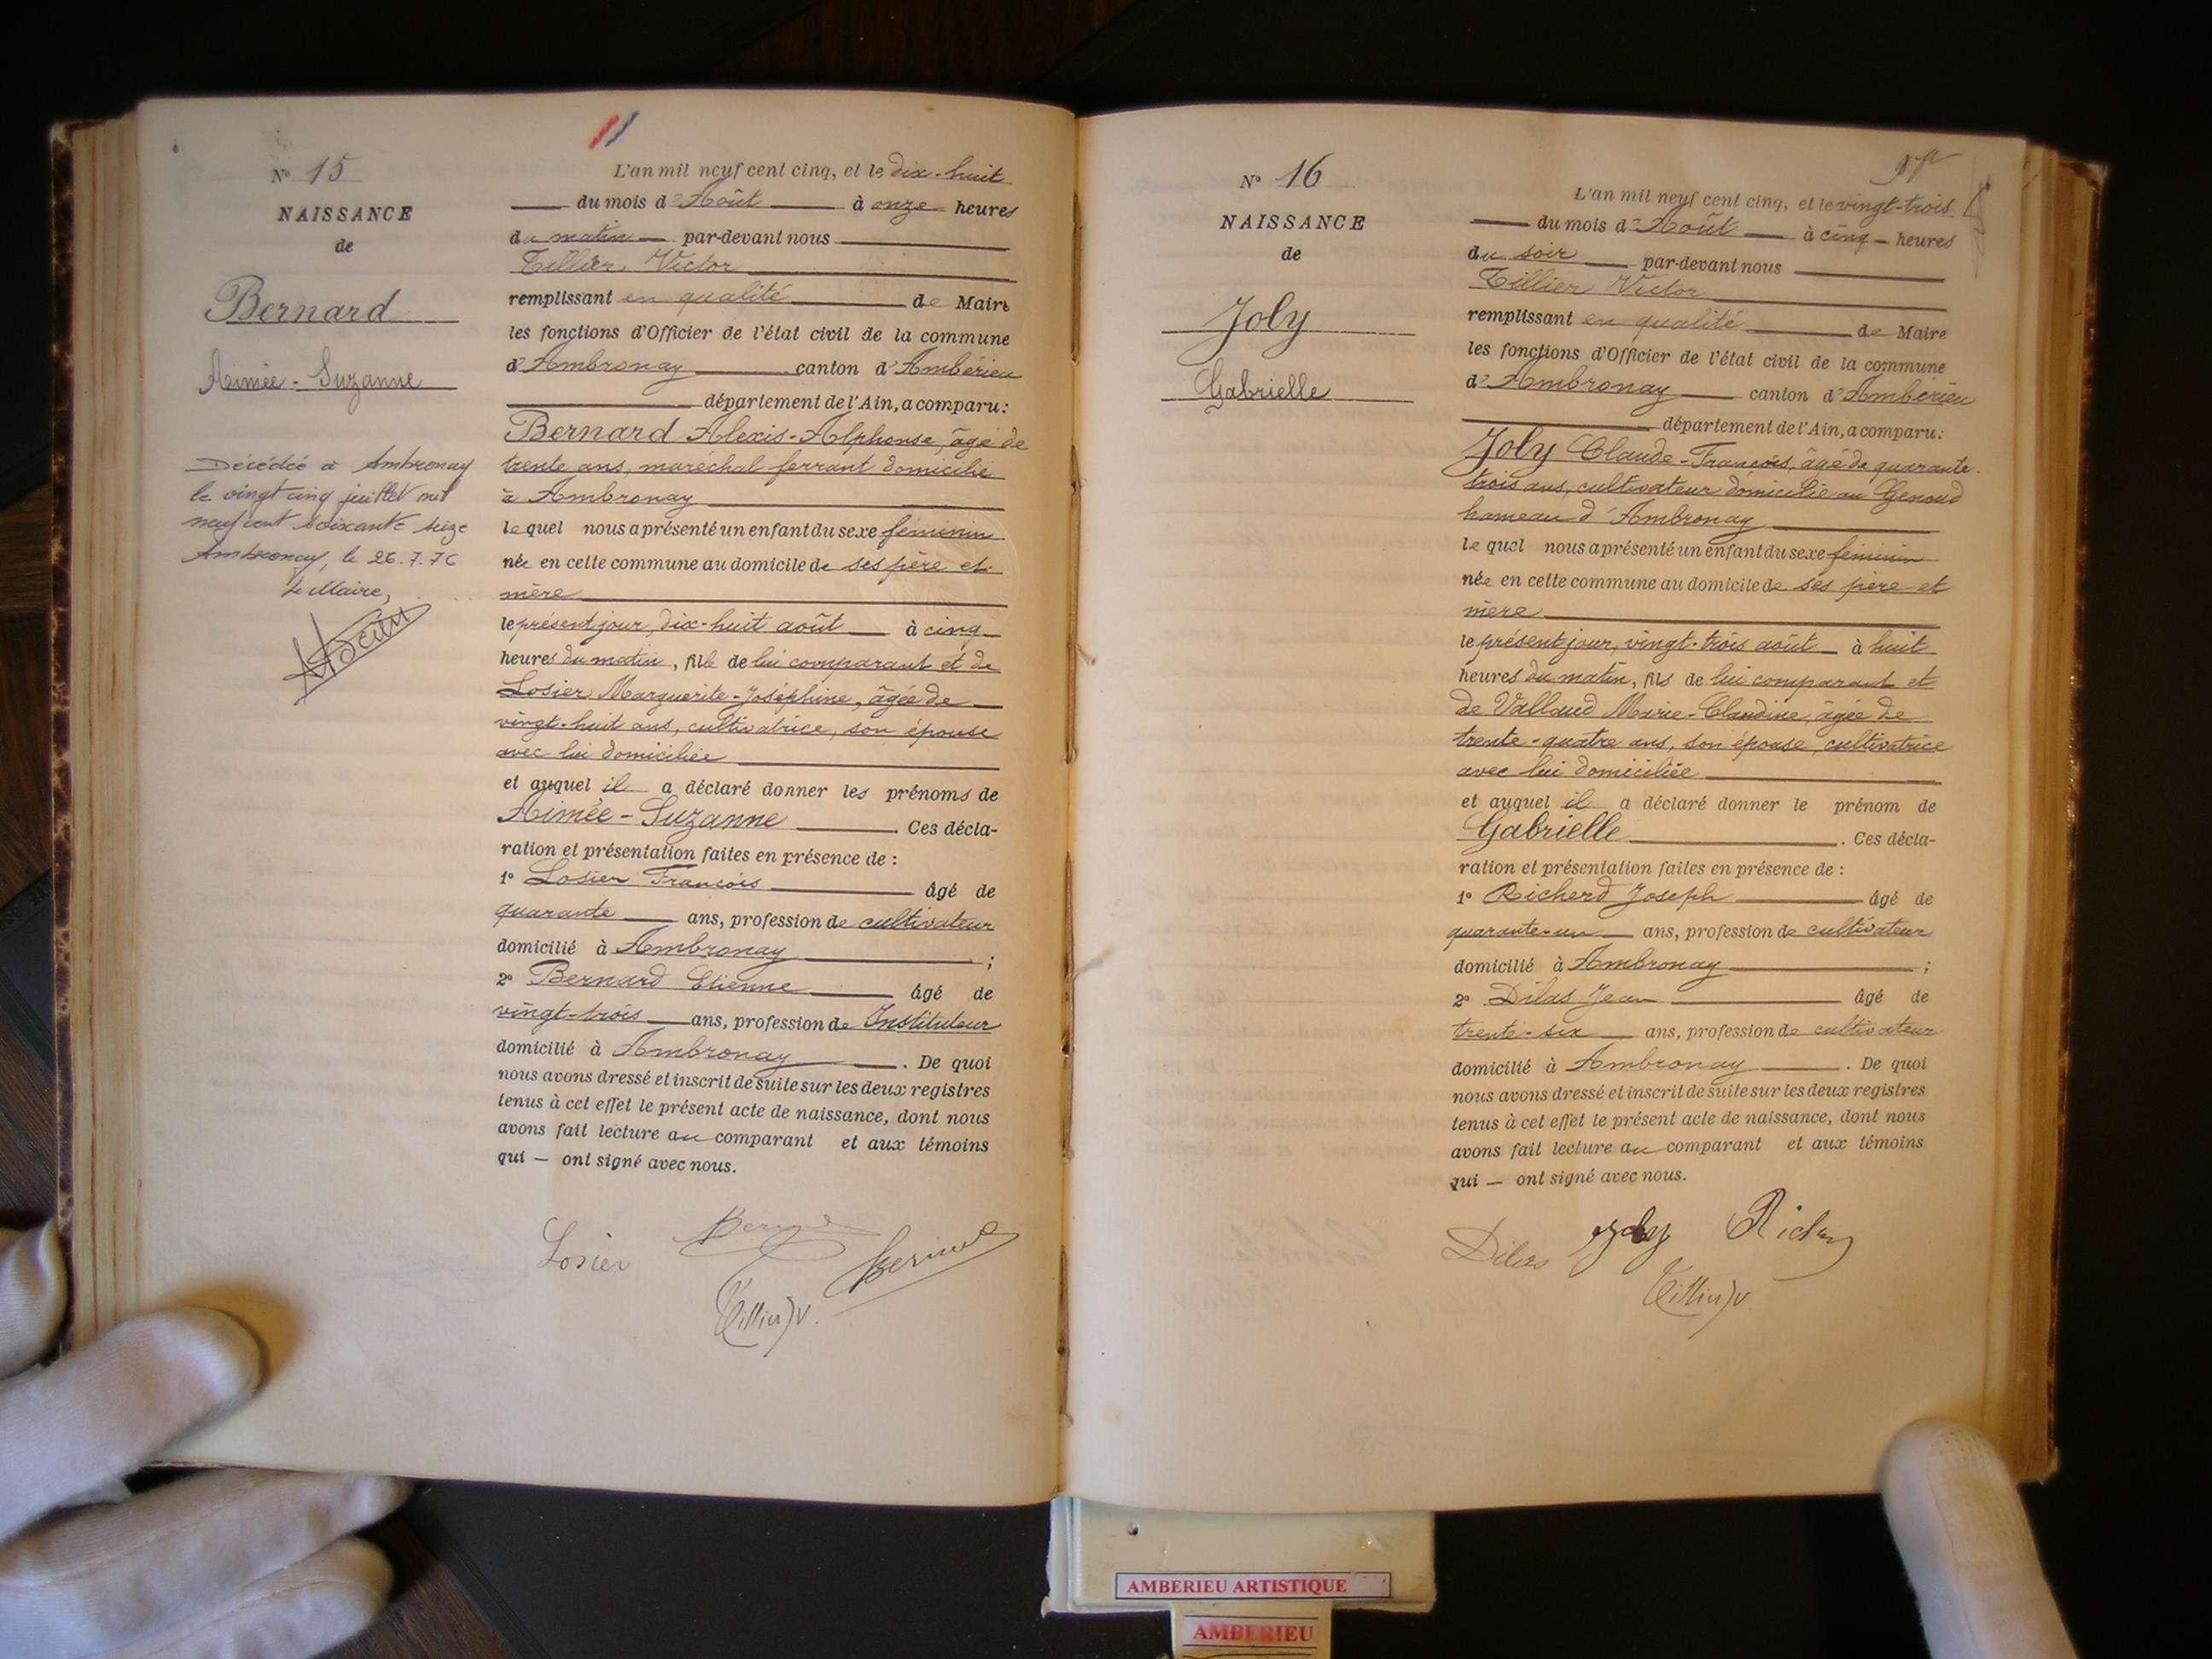 N° 15
NAISSANCE
de
Bernard
Aimée-Suzanne
Décédée à Ambronay
le vingt cinq juillet mil
neuf cent soixante seize
Ambronay, le 26.7.76
Le Maire,
L'an mil neuf cent cinq, et le dix-huit
du mois d'Août à onze heures
du matin par-devant nous
Tillier Victor
remplissant en qualité de Maire
les fonctions d'Officier de l'état civil de la commune
d'Ambronay canton d'Ambérieu
département de l'Ain, a comparu :
Bernard Alexis-Alphonse, âgé de
trente ans, maréchal ferrant domicilié
à Ambronay
lequel nous a présenté un enfant du sexe féminin
née en cette commune au domicile de ses père et
mère
le présent jour, dix-huit août à cinq
heures du matin, fille de lui comparant et de
Losier Marguerite-Joséphine, âgée de
vingt-huit ans, cultivatrice, son épouse
avec lui domiciliée
et auquel il a déclaré donner les prénoms de
Aimée-Suzanne. Ces décla-
ration et présentation faites en présence de :
1° Losier François âgé de
quarante ans, profession de cultivateur
domicilié à Ambronay ;
2° Bernard Etienne âgé de
vingt-trois ans, profession de Instituteur
domicilié à Ambronay. De quoi
nous avons dressé et inscrit de suite sur les deux registres
tenus à cet effet le présent acte de naissance, dont nous
avons fait lecture au comparant et aux témoins
qui — ont signé avec nous.
Losier
Tillier V.
N° 16
NAISSANCE
de
Joly
Gabrielle
L'an mil neuf cent cinq, et le vingt-trois
du mois d'Août à cinq heures
du soir par-devant nous
Tillier Victor
remplissant en qualité de Maire
les fonctions d'Officier de l'état civil de la commune
d'Ambronay canton d'Ambérieu
département de l'Ain, a comparu :
Joly Claude-François, âgé de quarante
trois ans, cultivateur domicilié au Genoud
hameau d'Ambronay
lequel nous a présenté un enfant du sexe féminin
née en cette commune au domicile de ses père et
mère
le présent jour, vingt-trois août à huit
heures du matin, fils de lui comparant et
de Vallaud Marie-Claudine, âgée de
trente-quatre ans, son épouse, cultivatrice
avec lui domiciliée
et auquel il a déclaré donner le prénom de
Gabrielle. Ces décla-
ration et présentation faites en présence de :
1° Richerd Joseph âgé de
quarante-un ans, profession de cultivateur
domicilié à Ambronay ;
2° Dilas Jean âgé de
trente-six ans, profession de cultivateur
domicilié à Ambronay. De quoi
nous avons dressé et inscrit de suite sur les deux registres
tenus à cet effet le présent acte de naissance, dont nous
avons fait lecture au comparant et aux témoins
qui — ont signé avec nous.
Dilas Joly
Tillier V
AMBERIEU ARTISTIQUE
AMBERIEU